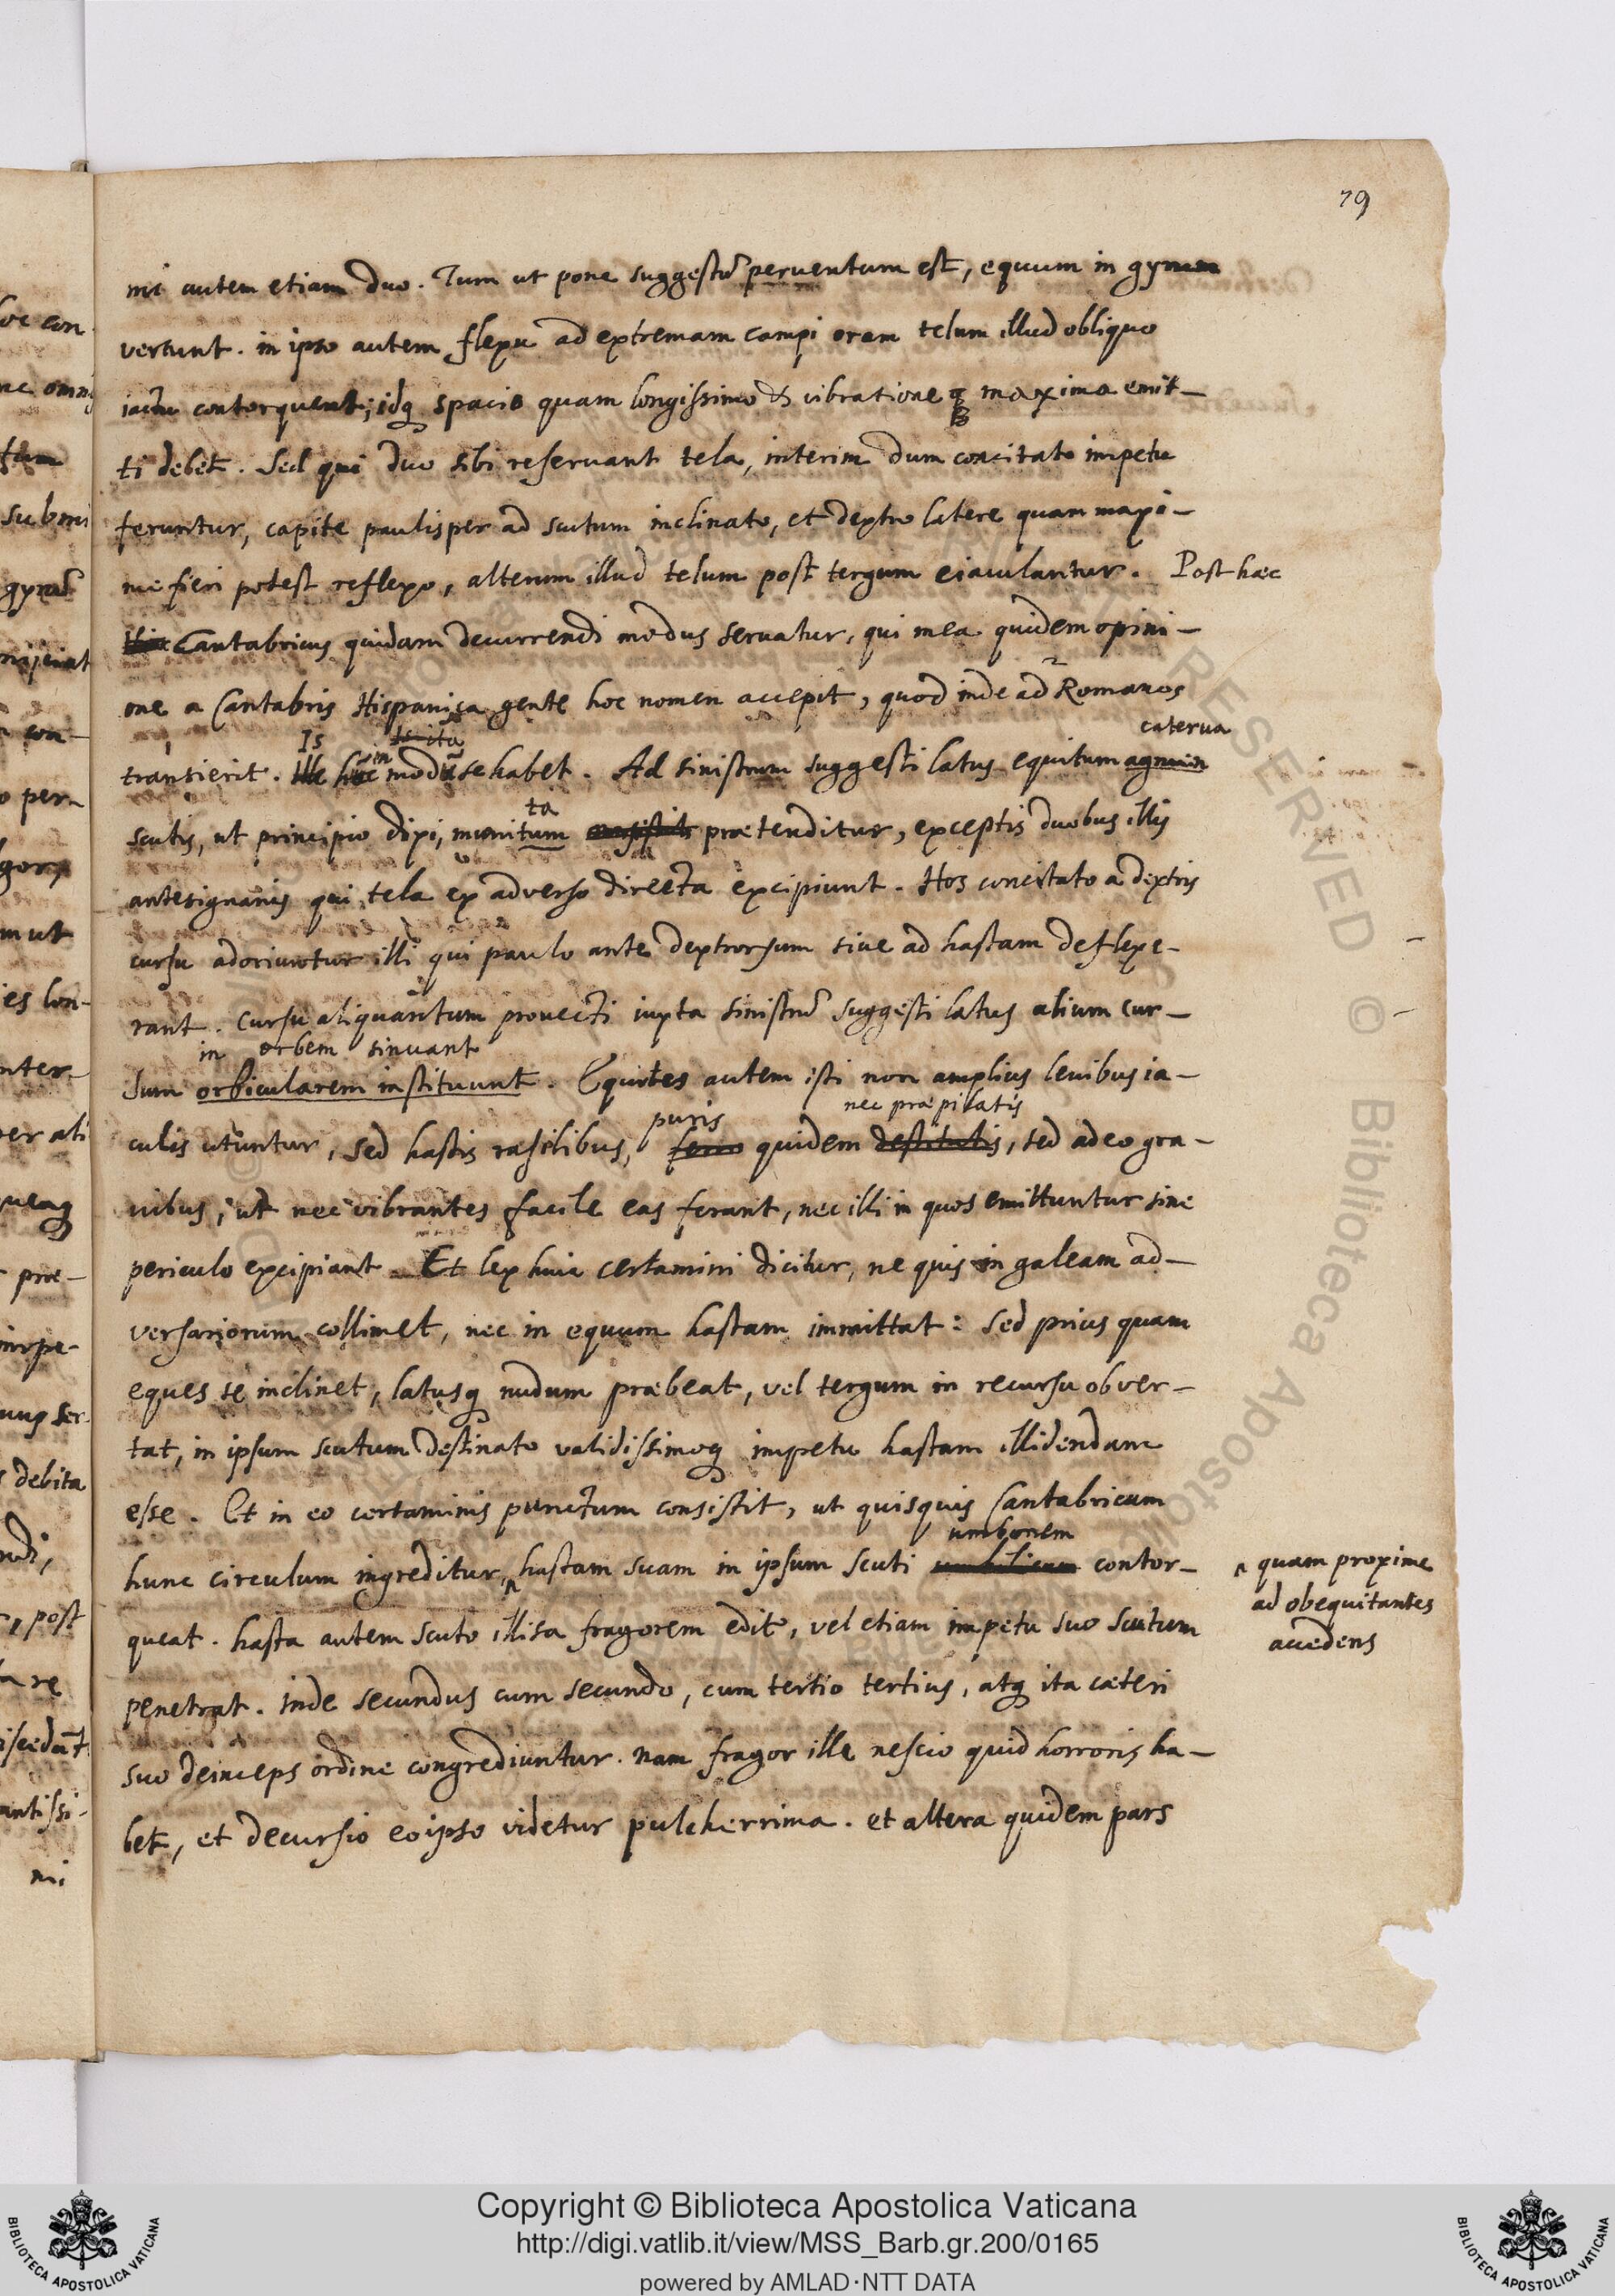 79
mi autem etiam duo. Tum ut pone suggestũ peruentum est, equum in gyrum
vertunt. in ipso autem flexu ad extremam campi oram telum illud obliquo
iactu contorquent; idq; spacio quam longissimo & vibratione q maxima emit-
ti debet. Sed qui duo sibi reseruant tela, interim dum concitato impetu
feruntur, capite paulisper ad scutum inclinato, et dextro latere quam maxi-
me fieri potest reflexo, alterum illud telum post tergum eiaculantur. Post hæc
Hic Cantabricus quidam decurrendi modus seruatur, qui mea quidem opini-
one a Cantabris Hispanica gente hoc nomen accepit, quod inde ad Romanos
Is in caterua
transierit. Ille hũc modũ se habet. Ad sinistrum suggesti latus equitum agmen
ta
scutis, ut principio dixi, munitum prætenditur, exceptis duobus illis
antesignanis qui tela ex aduerso directa excipiunt. Hos concitato a dextris
cursu adoriuntur illi qui paulo ante dextrorsum siue ad hastam deflexe-
rant. Cursu aliquantum prouecti iuxta sinistrũ suggesti latus alium cur-
in orbem sinuant
sum orbicularem instituunt. Equites autem isti non amplius leuibus ia-
puris nec præpilatis
culis utuntur, sed hastis rasilibus, ferro quidem destitutis, sed adeo gra-
uibus, ut nec vibrantes facile eas ferant, nec illi in quos emittuntur sine
periculo excipiant. Et lex huic certamini dicitur, ne quis in galeam ad-
versariorum collimet, nec in equum hastam immittat: sed prius quam
eques se inclinet, latusq; nudum præbeat, vel tergum in recursu obver-
tat, in ipsum scutum destinato validissimoq; impetu hastam illidendam
esse. Et in eo certaminis punctum consistit, ut quisquis Cantabricum
umbonem
hunc circulum ingreditur, ^ hastam suam in ipsum scuti umbilicum contor-
^ quam proxime
ad obequitantes
accedens
queat. hasta autem scuto illisa fragorem edit, vel etiam impetu suo scutum
penetrat. inde secundus cum secundo, cum tertio tertius, atq; ita cæteri
suo deinceps ordine congrediuntur. nam fragor ille nescio quid horroris ha-
bet, et decursio eo ipso videtur pulcherrima. et altera quidem pars
Copyright © Biblioteca Apostolica Vaticana
http://digi.vatlib.it/view/MSS_Barb.gr.200/0165
powered by AMLAD·NTT DATA